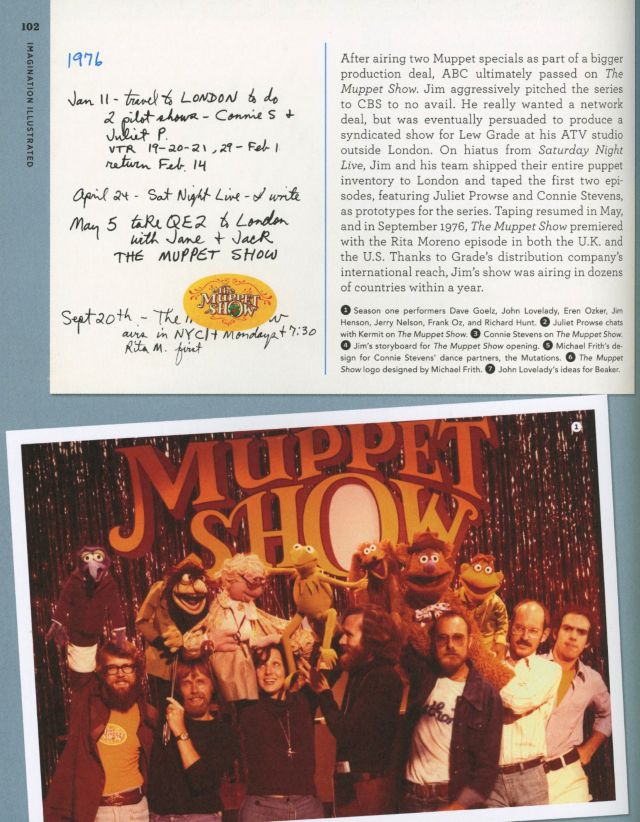 102
IMAGINATION ILLUSTRATED
1976
Jan 11 - travel to LONDON to do
2 pilot shows - Connie S +
Juliet P.
VTR 19-20-21, 29 - Feb 1
return Feb. 14
April 24 - Sat Night Live - I write
May 5 take QE2 to London
with Jane + Jack
THE MUPPET SHOW
THE
MUPPET
SHOW
Sept 20th - The
airs in NYC Mondays 7:30
Rita M. first
After airing two Muppet specials as part of a bigger
production deal, ABC ultimately passed on The
Muppet Show. Jim aggressively pitched the series
to CBS to no avail. He really wanted a network
deal, but was eventually persuaded to produce a
syndicated show for Lew Grade at his ATV studio
outside London. On hiatus from Saturday Night
Live, Jim and his team shipped their entire puppet
inventory to London and taped the first two epi-
sodes, featuring Juliet Prowse and Connie Stevens,
as prototypes for the series. Taping resumed in May,
and in September 1976, The Muppet Show premiered
with the Rita Moreno episode in both the U.K. and
the U.S. Thanks to Grade's distribution company's
international reach, Jim's show was airing in dozens
of countries within a year.
❶ Season one performers Dave Goelz, John Lovelady, Eren Ozker, Jim
Henson, Jerry Nelson, Frank Oz, and Richard Hunt. ❷ Juliet Prowse chats
with Kermit on The Muppet Show. ❸ Connie Stevens on The Muppet Show.
❹ Jim's storyboard for The Muppet Show opening. ❺ Michael Frith's de-
sign for Connie Stevens' dance partners, the Mutations. ❻ The Muppet
Show logo designed by Michael Frith. ❼ John Lovelady's ideas for Beaker.
1
MUPPET
SHOW
SHOW